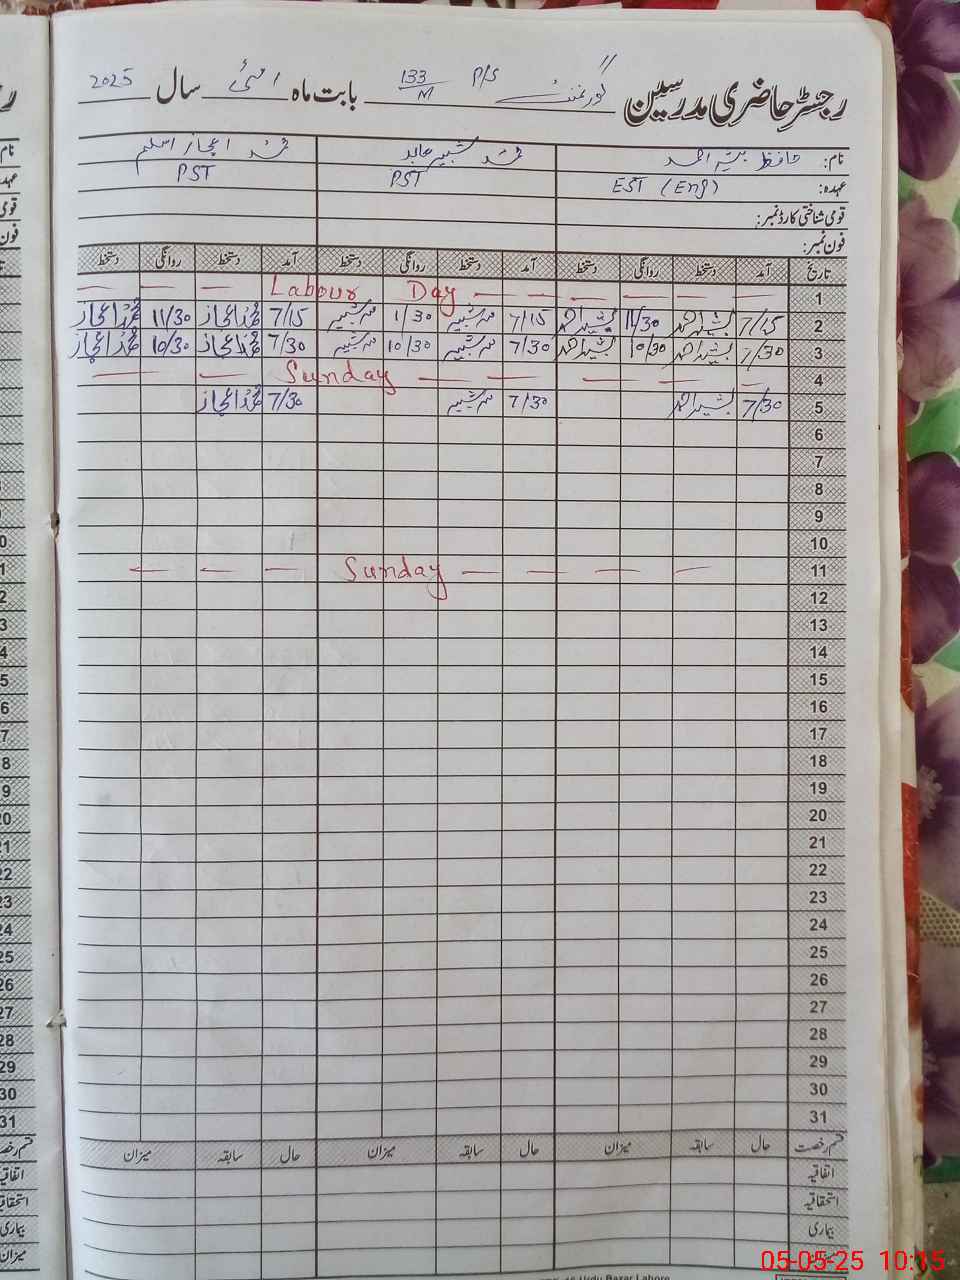 رجسٹر حاضری مدرسین گورنمنٹ P/S 133/M بابت ماہ مئی سال 2025
نام: حافظ بشیر احمد محمد شبیر عابد محمد اعجاز اسلم
عہدہ: EST (Eng) PST PST
قومی شناختی کارڈ نمبر:
فون نمبر:
تاریخ آمد دستخط روانگی دستخط آمد دستخط روانگی دستخط آمد دستخط روانگی دستخط
1 Labour Day
2 7/15 بشیر احمد 11/30 بشیر احمد 7/15 محمد شبیر 1/30 محمد شبیر 7/15 محمد اعجاز 11/30 محمد اعجاز
3 7/30 بشیر احمد 10/30 بشیر احمد 7/30 محمد شبیر 10/30 محمد شبیر 7/30 محمد اعجاز 10/30 محمد اعجاز
4 Sunday
5 7/30 بشیر احمد 7/30 محمد شبیر 7/30 محمد اعجاز
6
7
8
9
10
11 Sunday
12
13
14
15
16
17
18
19
20
21
22
23
24
25
26
27
28
29
30
31
قسم رخصت حال سابقہ میزان حال سابقہ میزان حال سابقہ میزان
اتفاقیہ
استحقاقیہ
بیماری
میزان
Urdu Bazar Lahore
05-05-25 10:15